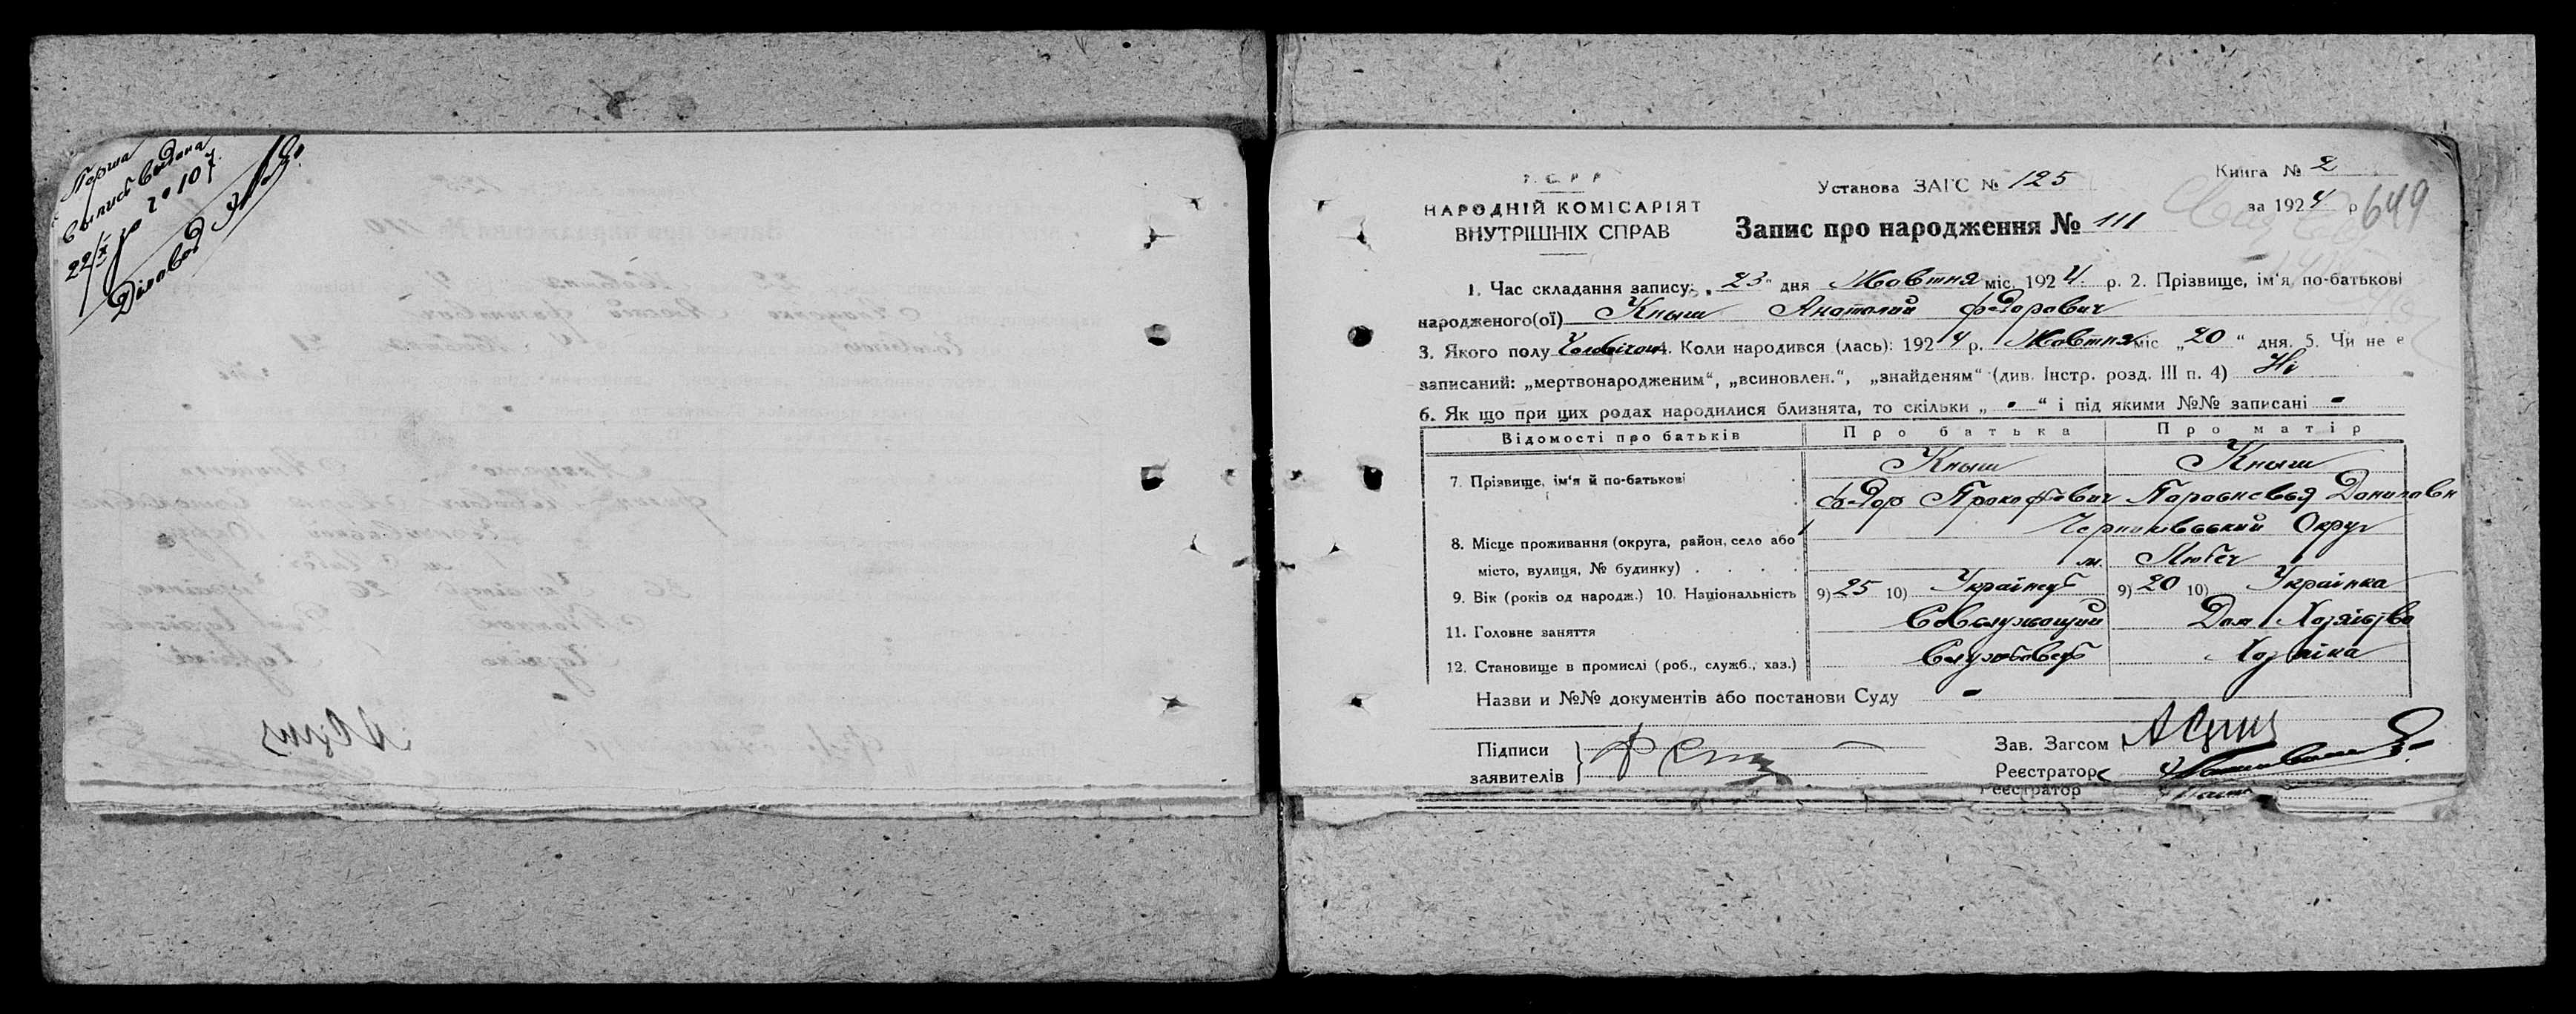 Перша
выпись выдана
22/X за № 107
Діловод
У.С.Р.Р.
НАРОДНІЙ КОМІСАРІЯТ
ВНУТРІШНІХ СПРАВ
Установа ЗАГС № 125
Книга № 2
за 1924 р
649
Запис про народження № 111
1. Час складання запису: „23" дня Жовтня міс. 1924 р. 2. Прізвище, ім'я, по-батькові
народженого(ої) Кныш Анатолий Федорович
3. Якого полу Чоловічого 4. Коли народився (лась): 1924 р. Жовтня міс „20" дня. 5. Чи не є
записаний: „мертвонародженим", „всиновлен.", „знайденям" (див. Інстр. розд. III п. 4) Ні
6. Як що при цих родах народилися близнята, то скільки „ - " і під якими №№ записані -
Відомості про батьків Про батька Про матір
Кныш Кныш
7. Прізвище, ім'я й по-батькові
Федор Прокофович Параскевья Даниловн
Чернигівський Округ
8. Місце проживання (округа, район, село або
місто, вулиця, № будинку) м. Любеч
9. Вік (років од народж.) 10. Національність 9) 25 10) Українець 9) 20 10) Українка
11. Головне заняття Совслужощий Дом. Хозяйство
12. Становище в промислі (роб., служб., хаз.) Службовець Хозяйка
Назви и №№ документів або постанови Суду -
Підписи
заявителів
Зав. Загсом
Реєстратор
Реєстратор